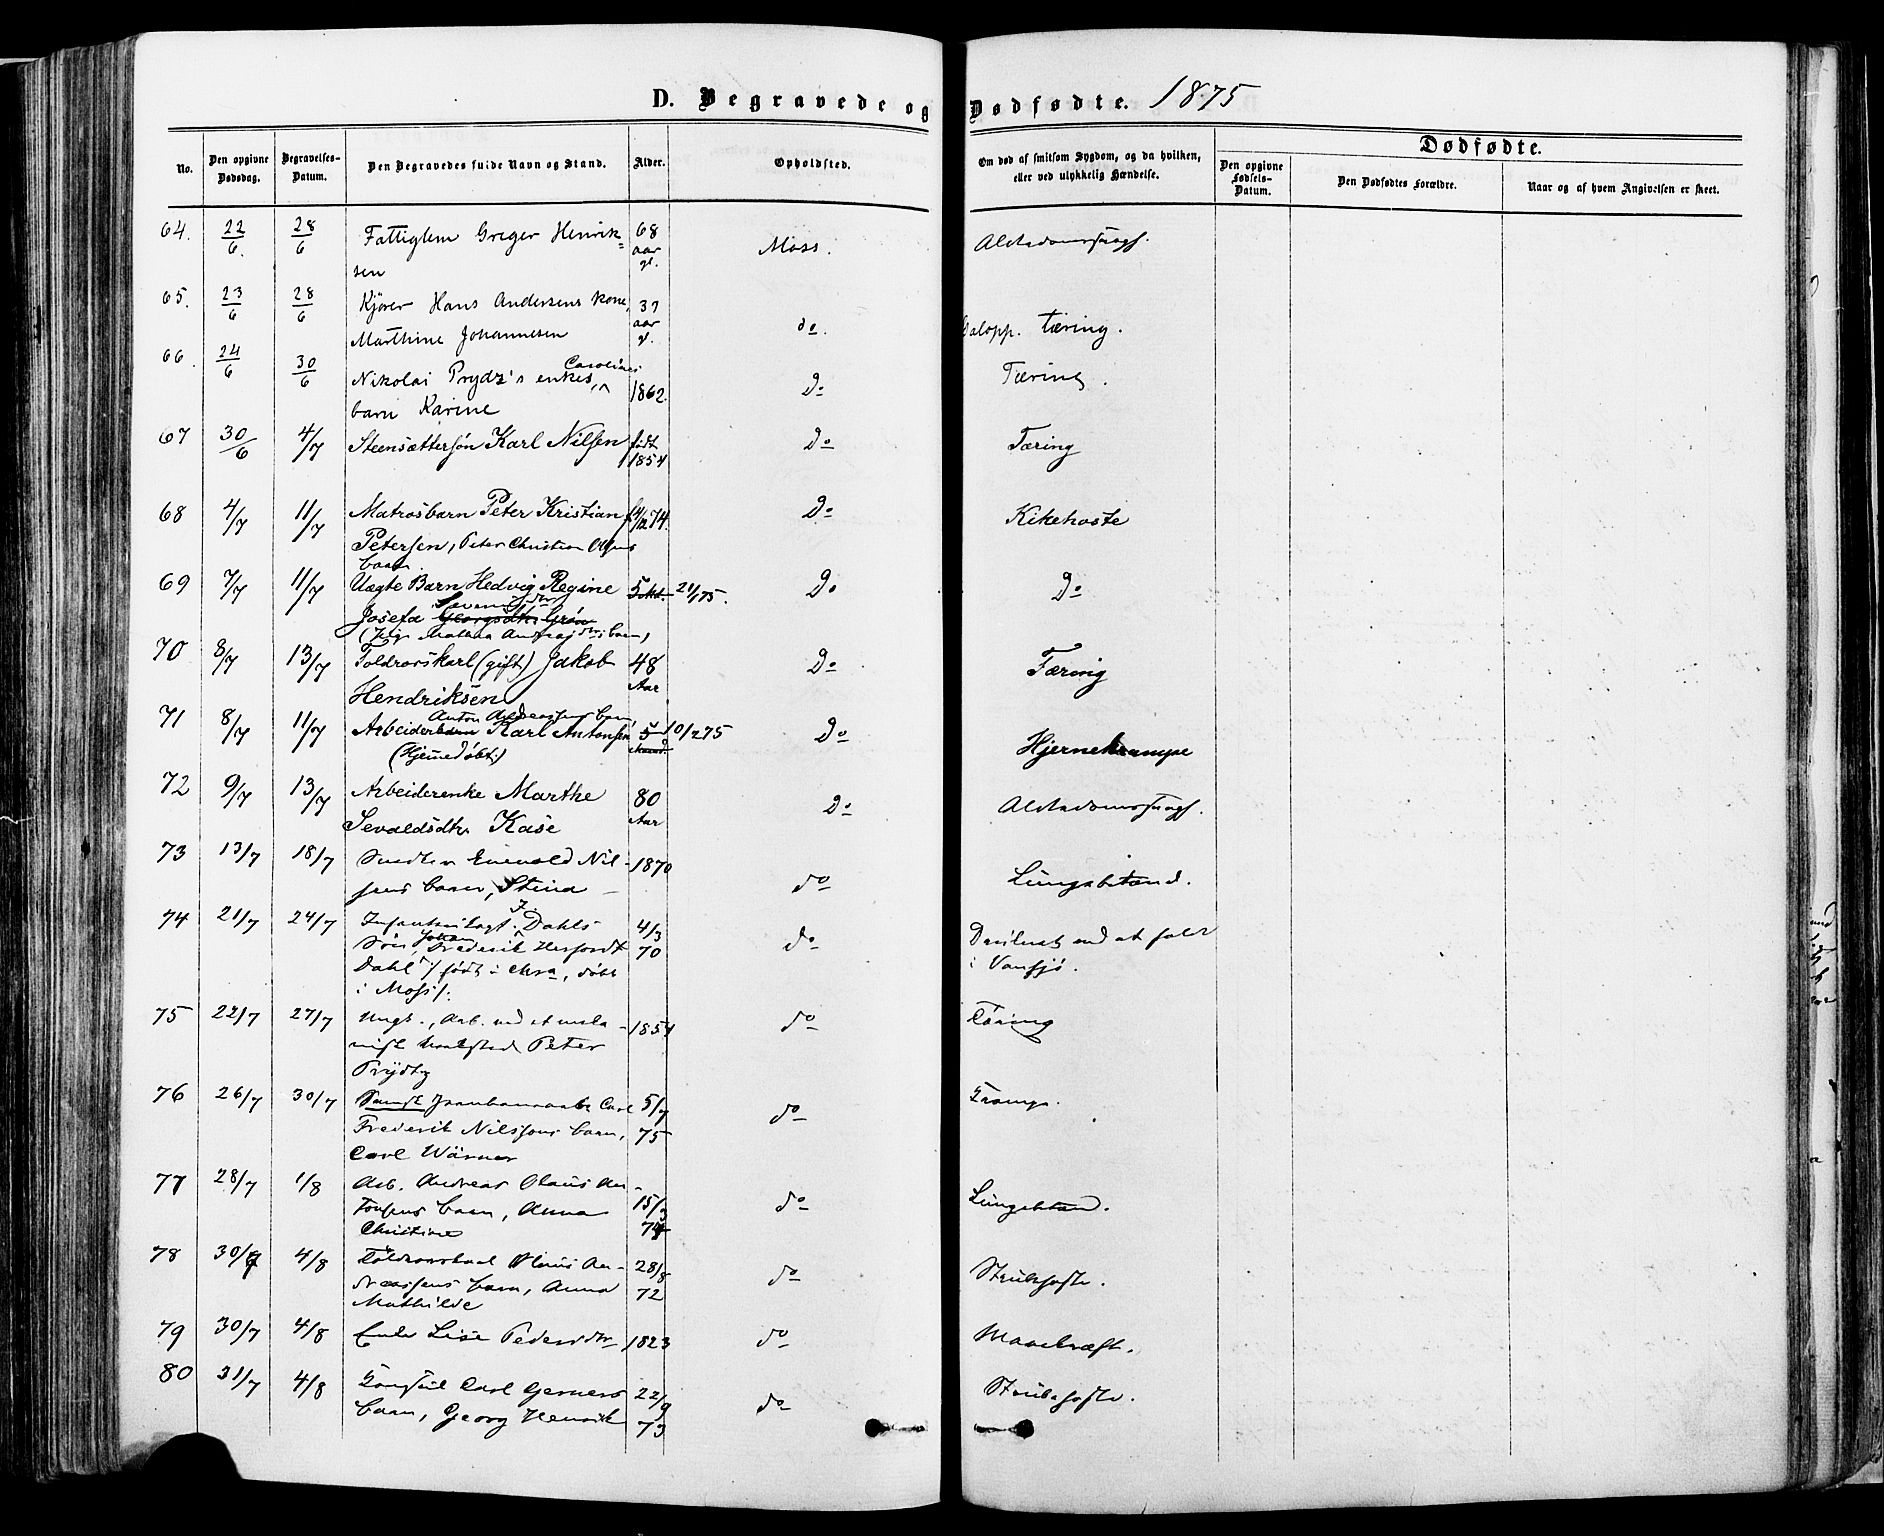 D. Begravede og Dødfødte. 1875
No.
Den opgivne Dødsdag.
Begravelses-Datum.
Den Begravedes fulde Navn og Stand.
Alder.
Opholdsted.
Om død af smitsom Sygdom, og da hvilken, eller ved ulykkelig Hændelse.
Dødfødte.
Den opgivne Fødsels-Datum.
Den Dødfødtes Forældre.
Naar og af hvem Angivelsen er skeet.
64. 22/6. 28/6 Fattiglem Greger Henrik= 68 Moss. Alderdomssvagh.
sen aar gl.
65. 23/6 28/6 Kjører Hans Andersens kone, 37 do. Galopp. tæring.
Marthine Johannesen aar gl.
66. 24/6 30/6 Nikolai Prydz's enkes, Carolines 1862. Do Tæring.
barn Karine
67 30/6 4/7 Steensættersøn Karl Nilsen født 1854 Do Tæring
68 4/7 11/7 Matrosbarn Peter Kristian 74. Do Kikehoste
Petersen, Peter Christian Olsens
barn.
69 7/7 11/7 Uægte Barn Hedvig Regine 5 Md. 21/1 75. Do Do
Josefa Georgsdtr. Grøn
70 8/7 13/7 Toldrorskarl (gift) Jakob 48 Do Tæring
Hendriksen Aar
71 8/7 11/7 Anton Andreassens barn,
Arbeiderbarn Karl Antonsen 5 10/2 75 Do Hjernekrampe
(Hjemmedøbt)
72 9/7 13/7 Arbeiderenke Marthe 80 Do Alderdomssvagh.
Sevaldsdtr. Kase Aar
73 13/7 18/7 Enevold Nil- 1870 do Lungebetænd.
sens barn, Stina
74 21/7 24/7 J. Dahls 4/3 do
Søn, Johan Frederik Herfordt 70 i Vansjø.
Dahl / født i Chra, døbt
i Moss /.
75 22/7 27/7 Ungk., Arb. ved et meka- 1854 do Tæring
nisk Værksted Peter
Prydtz
76 26/7 30/7 Jernbanearb. Carl 5/7 do Krampe.
Frederik Nilssons barn, 75
Carl Wärner
77 28/7 1/8 Arb. Andreas Olaus An- 15/3 do Lungebetænd.
tonsens barn, Anna 74
Christine
78 30/7 4/8 Toldrorskarl Olaus An- 28/8 do Strubehoste.
dreassens barn, Anna 72
Mathilde
79 30/7 4/8 Enke Lise Pedersdtr 1823 do Mavekræft.
80 31/7 4/8 Konsul Carl Gerners 22/9 do Strubehoste.
barn, Georg Henrik 73